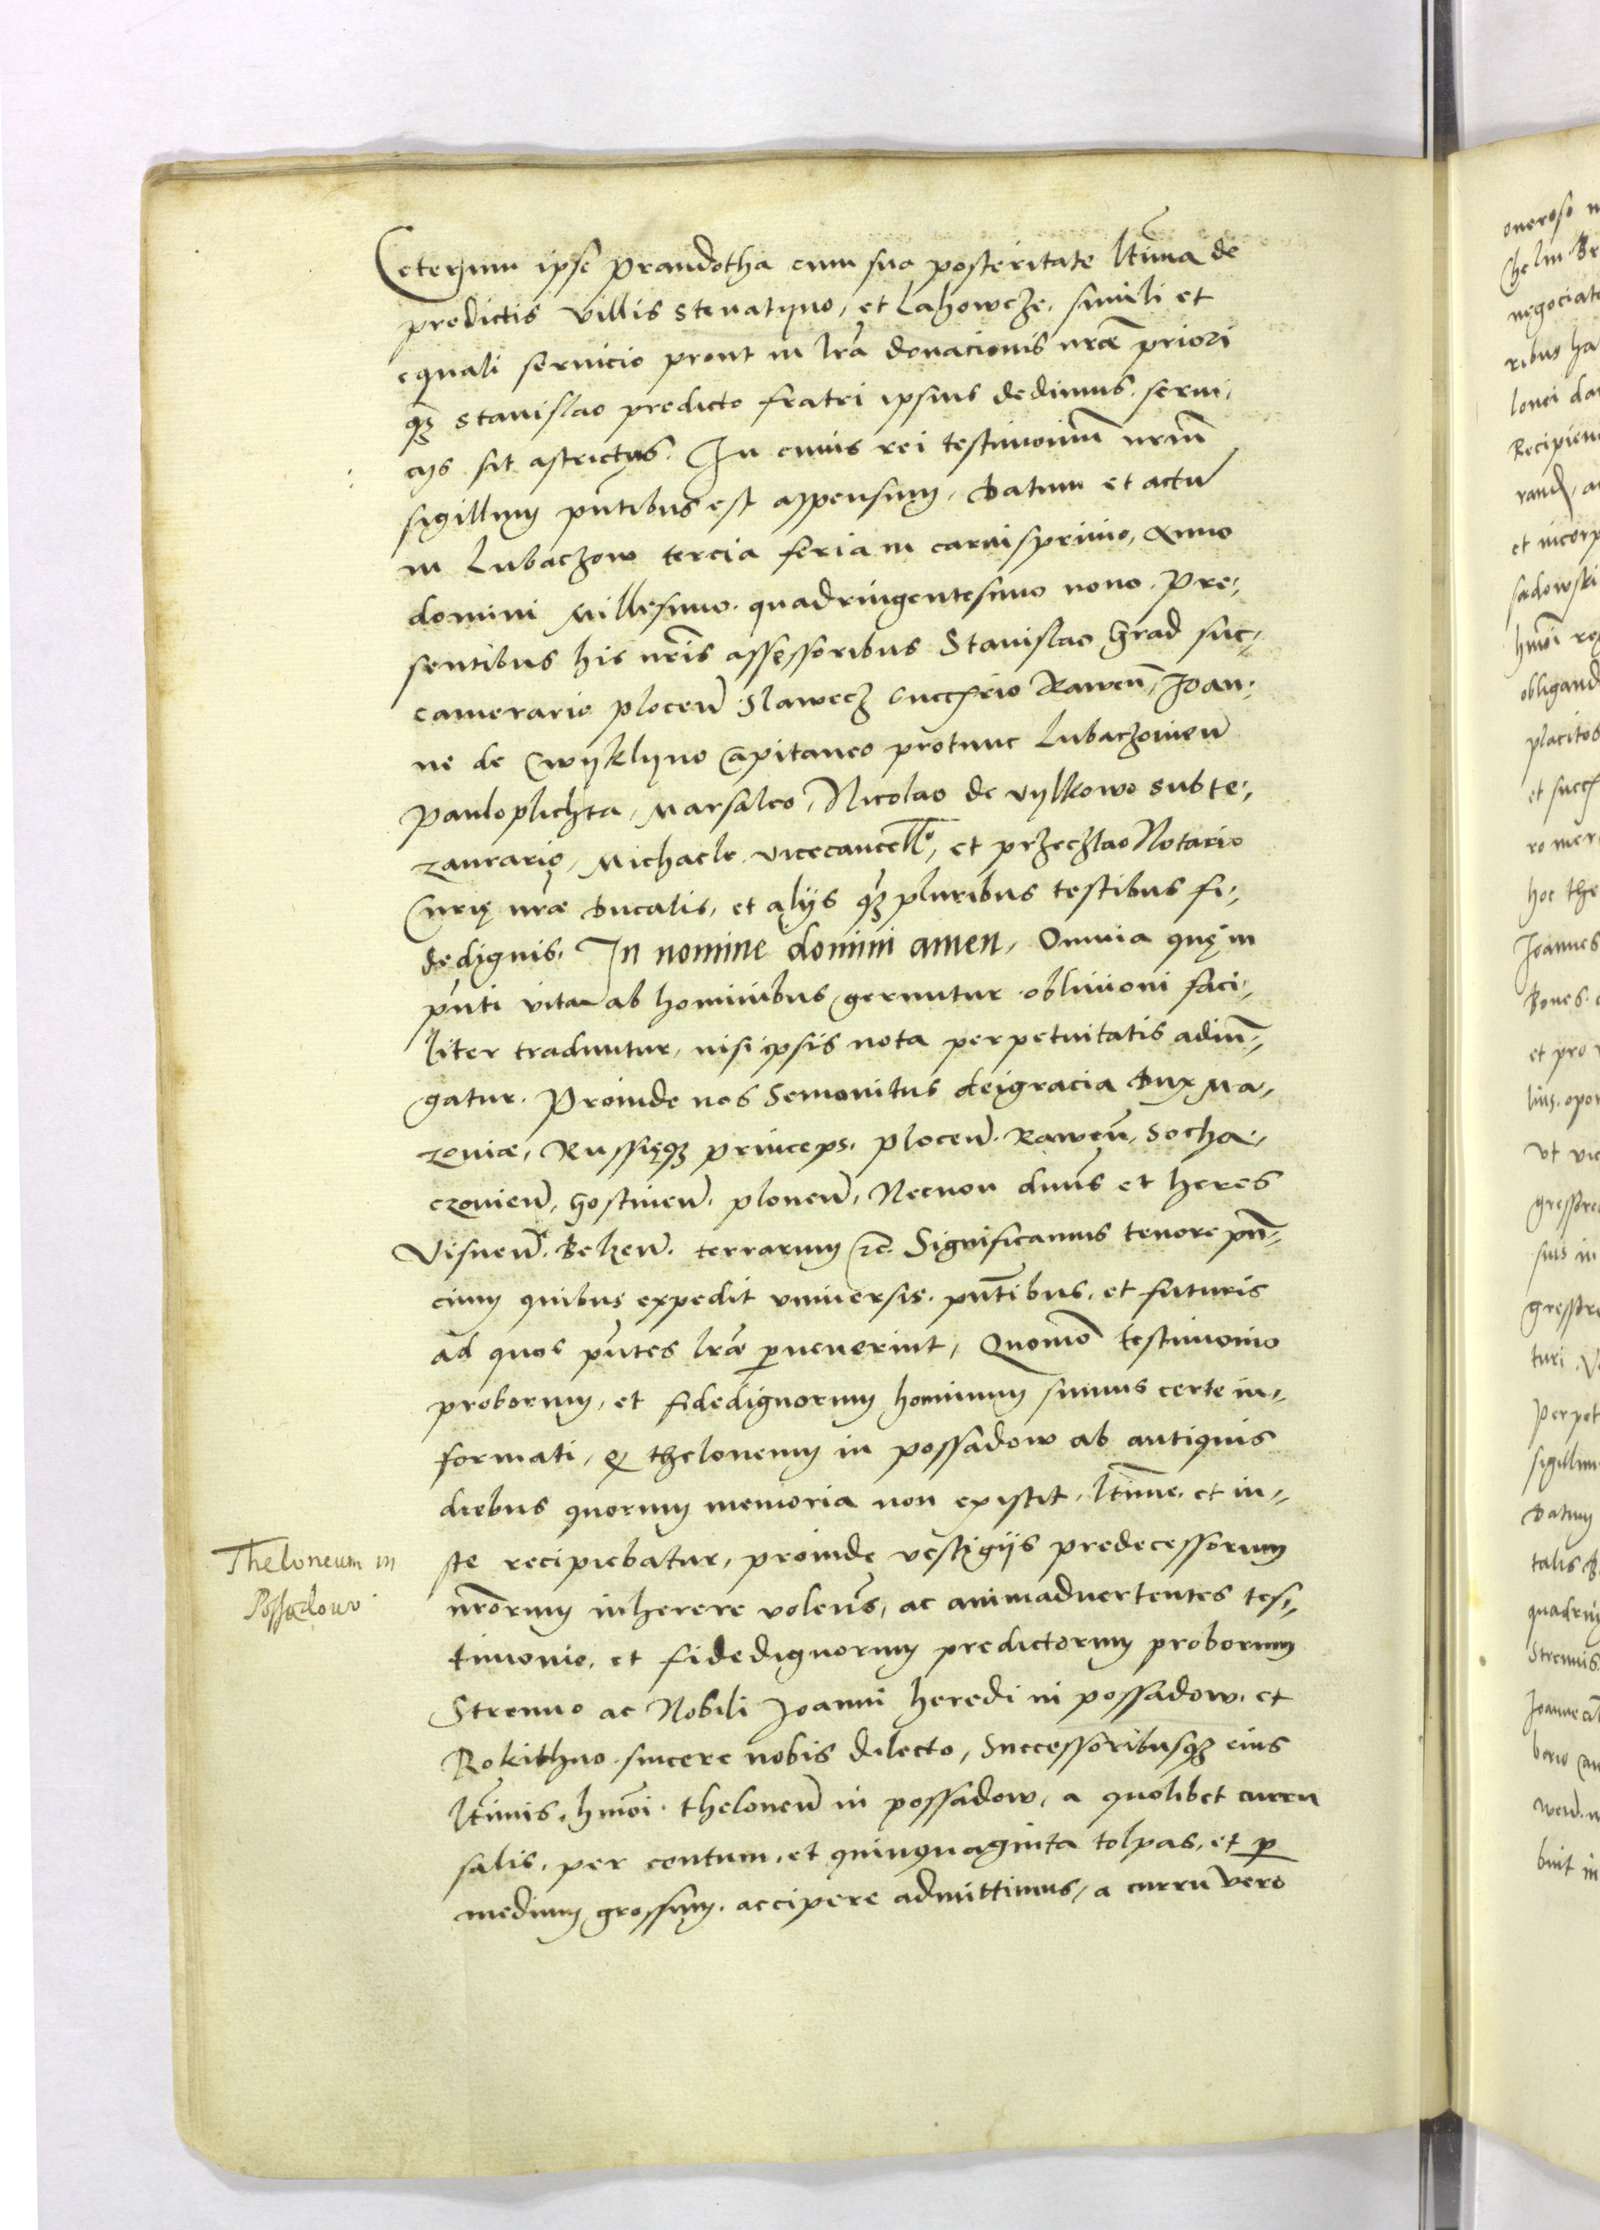 Ceterum ipse Prandotha cum sua posteritate ltīma de
predictis villis Stenatyno, et Lahowcze, simili et
equali seruicio prout in lrā donacionis nrāe priori
qz Stanislao predicto fratri ipsius dedimus. serui,
cijs sit astrictus. In cuius rei testimoniū nrūm
sigillum pn̄tibus est appensum, Datum et actū
in Lubaczow tercia feria in carnisprimio, Anno
domini Millesimo. quadringentesimo nono. Pre,
sentibus his nrīs assessoribus Stanislao Grad suc,
camerario plocen̄ Slawecz Succrio Rawen̄, Joan,
ne de Cwyklyno Capitaneo protunc Lubaczouien̄
Paulo plichta, Marsalco, Nicolao de vylkowo subte,
zaurario, Michaele vicecancello, et przeczlao Notario
Curię nrāe Ducalis, et alijs qz pluribus testibus fi,
dedignis. In nomine domini amen, Omnia quę in
pn̄ti vita ab hominibus geruntur obliuioni faci,
liter traduntur, nisi ipsis nota perpetuitatis adiun̄,
gatur. Proinde nos Semouitus dei gracia Dux Ma,
zouiæ, Russięqz princeps, plocen̄. Rawen̄, Socha,
czouien̄, Gostinen̄. plonen̄, Necnon dnūs et heres
Visnen̄. Belzen̄. terrarum etc. Significamus tenore pn̄,
cium quibus expedit vniuersis. pn̄tibus, et futuris
ad quos pn̄tes lrāe puenerint, Quomō testimonio
proborum, et fidedignorum hominum sumus certe in,
formati, q thelonemn in possadow ab antiquis
diebus quorum memoria non existit, ltīme, et iu,
ste recipiebatur, proinde vestigijs predecessorum
nrōrum inherere volens, ac animaduertentes tes,
timonio, et fidedignorum predictorum proborum
Strenuo ac Nobili Joanni heredi in possadow, et
Rokithno sincere nobis dilecto, Successoribusqz eius
ltīmis, hmōi. thelonen̄ in possadow, a quolibet curru
salis, per centum, et quinquaginta tolpas, et p
medium grossum, accipere admittimus, a curru vero
Theloneum in
Possadow